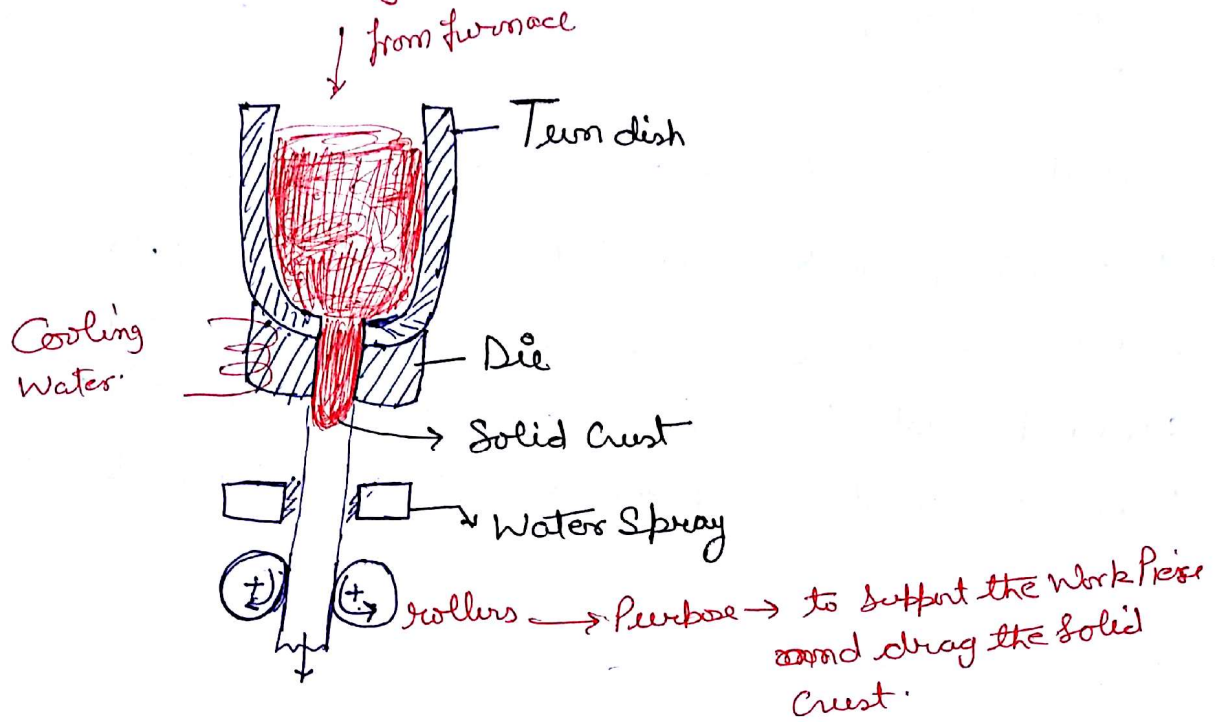 from furnace
Tundish
Cooling
Water.
Die
Solid Crust
Water Spray
rollers → Purpose → to Support the Work Pie
and drag the Solid
Crust.